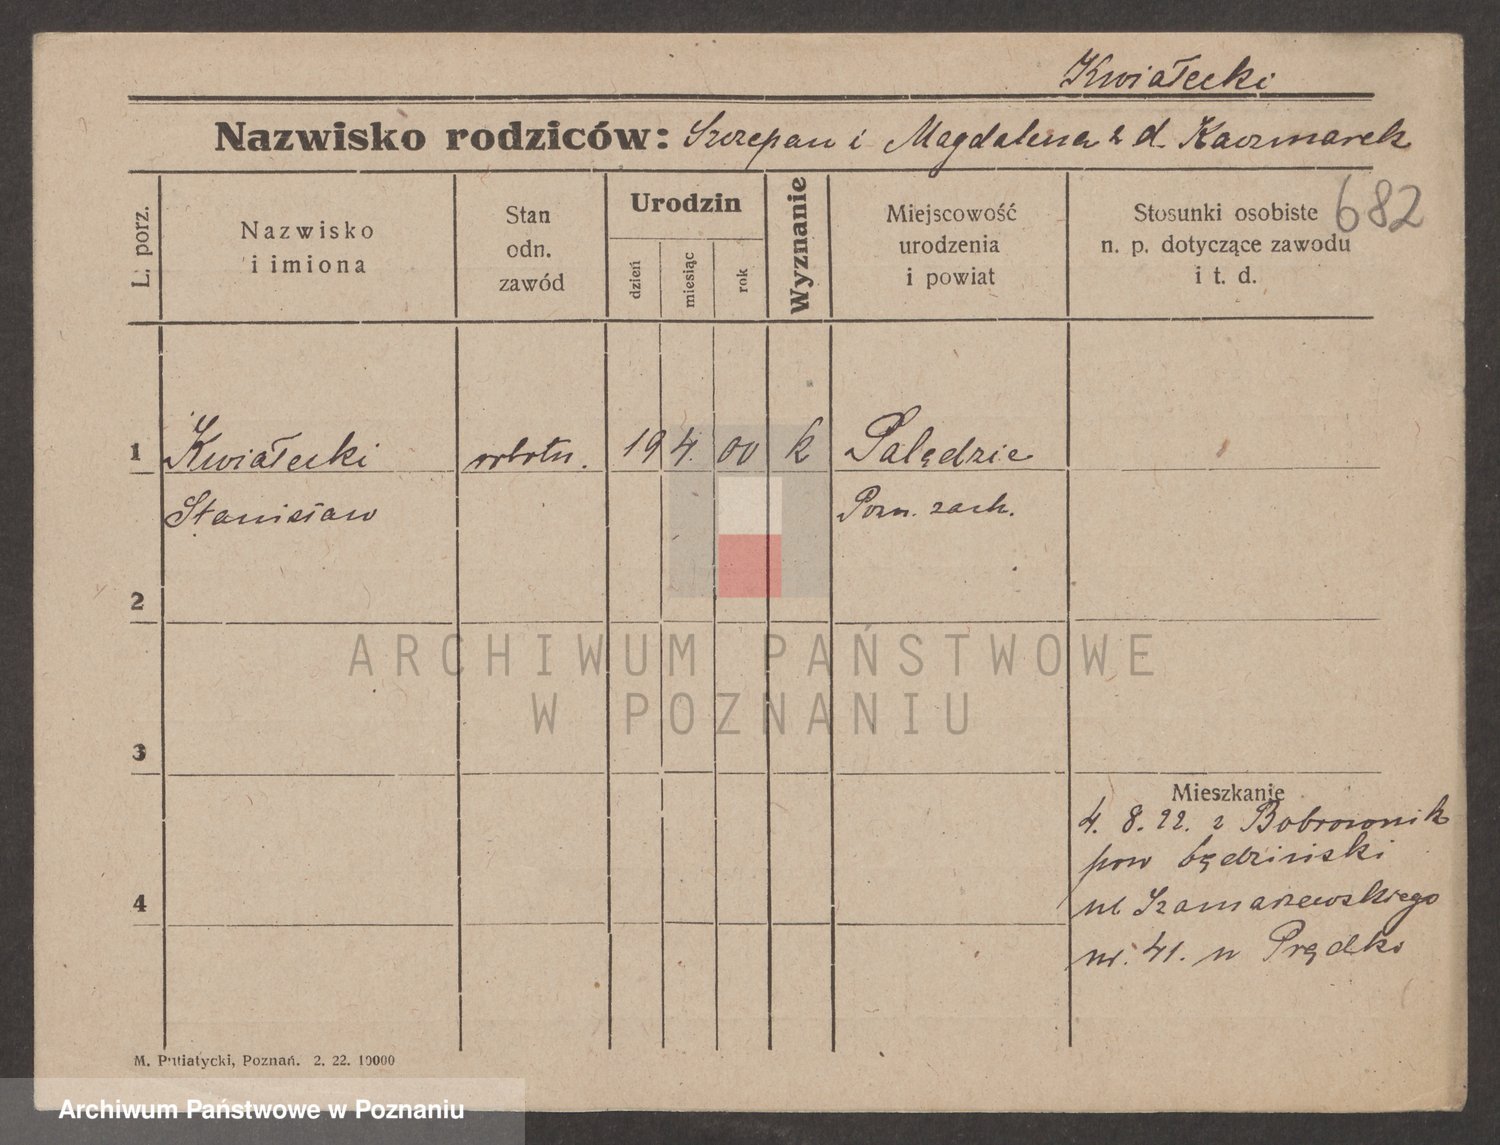 Kwiałecki
Nazwisko rodziców: Szczepan i Magdalena z d. Kaczmarek
682
L. porz.
Nazwisko
i imiona
Stan
odn.
zawód
Urodzin
dzień
miesiąc
rok
Wyznanie
Miejscowość
urodzenia
i powiat
Stosunki osobiste
n. p. dotyczące zawodu
i t. d.
1 Kwiałecki robotn. 19 4. 00 k Palędzie
Stanisław Pozn. zach.
2
ARCHIWUM PAŃSTWOWE
W POZNANIU
3
Mieszkanie
4. 8. 22. z Bobrownik
pow będziński
4
ul Szamarzewskiego
nr. 41. u Prędki
M. Putiatycki, Poznań. 2. 22. 10000
Archiwum Państwowe w Poznaniu